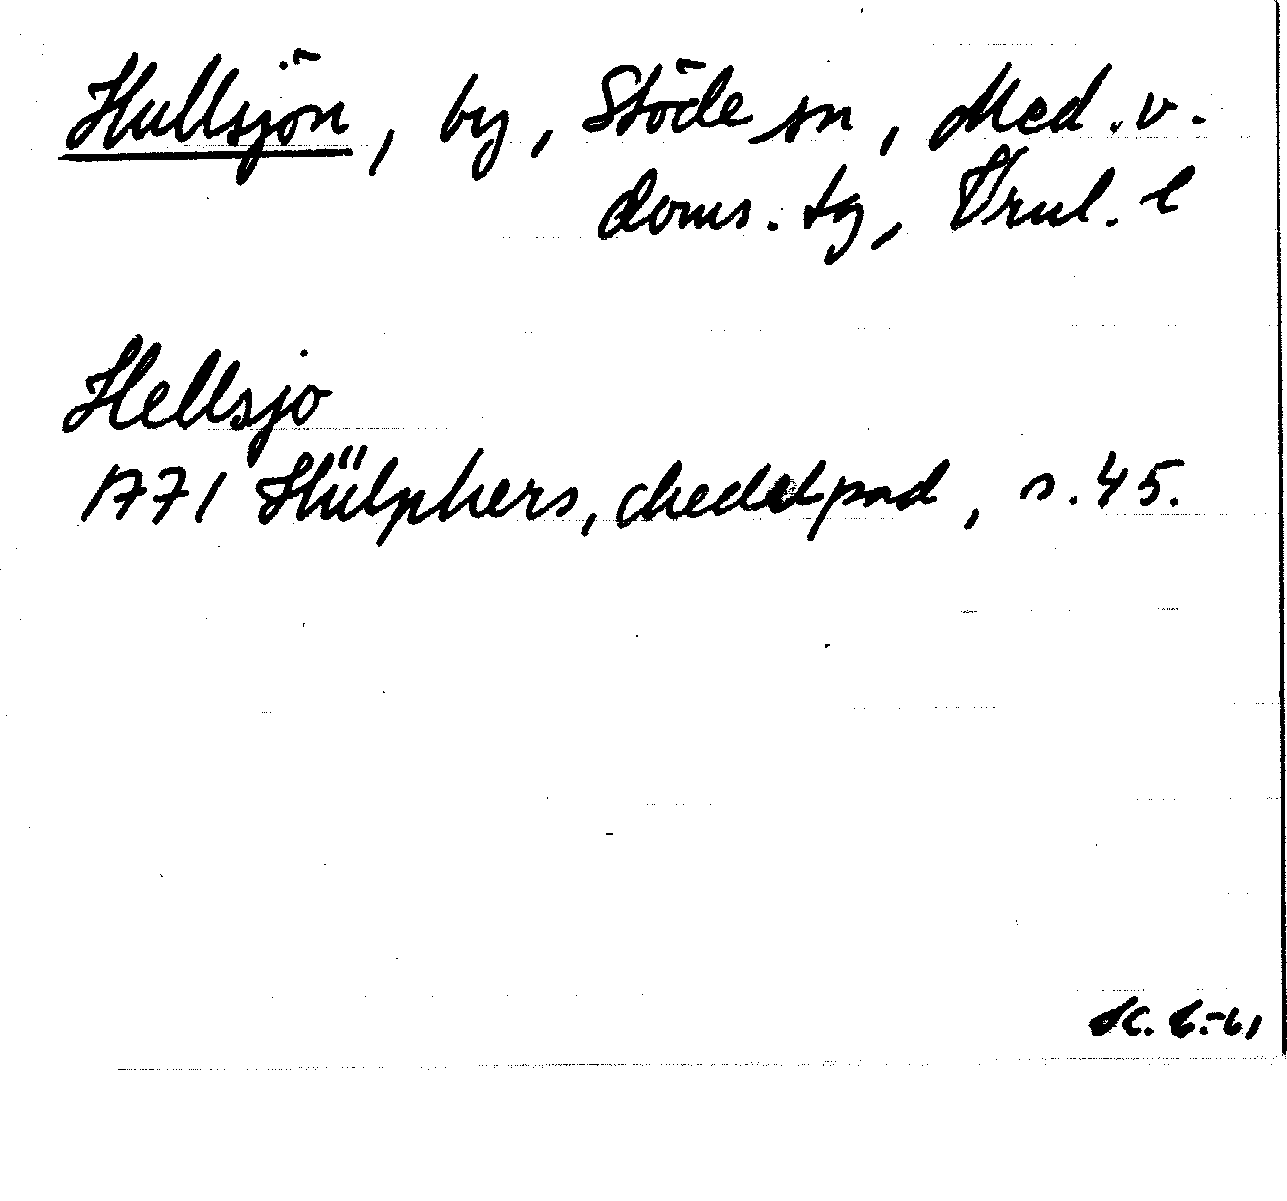 Hullsjön, by, Stöde sn, Med. v.
doms. tg, Vrnl. l
Hellsjo
1771 Hülphers, Medelpad, s. 45.